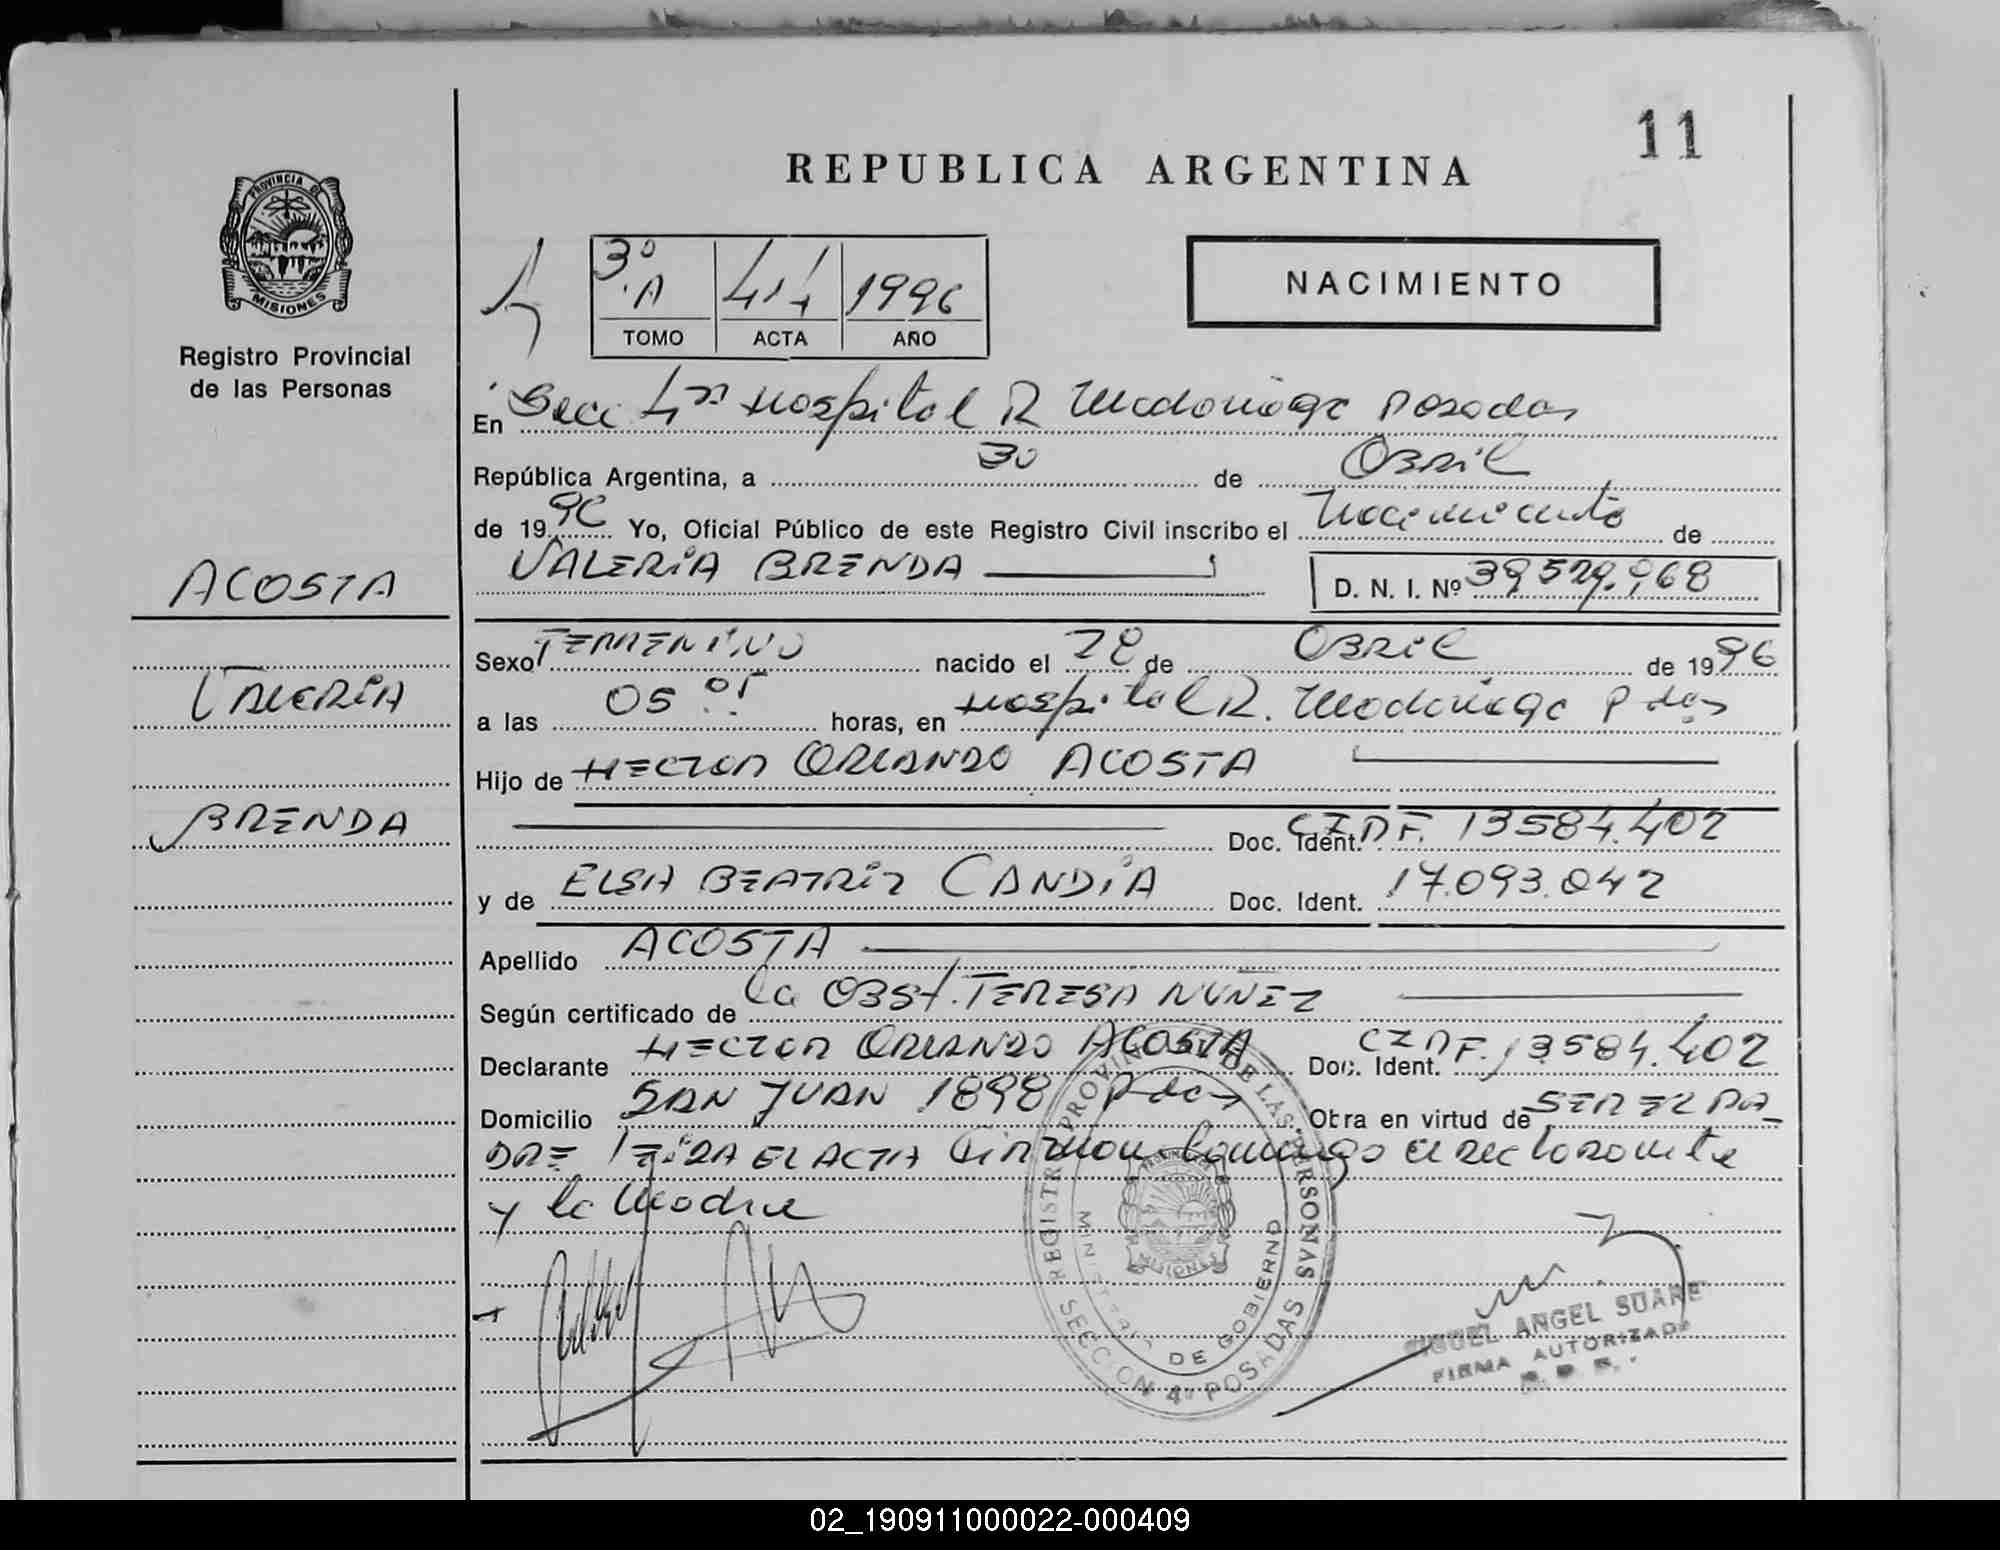 11
REPUBLICA ARGENTINA
PROVINCIA DE
MISIONES
Registro Provincial
de las Personas
3º A
1996
TOMO ACTA AÑO
NACIMIENTO
En Secc 4ta Hospital R Madariaga Posadas
República Argentina, a 30 de Abril
de 1996 Yo, Oficial Público de este Registro Civil inscribo el Nacimiento de
VALERIA BRENDA D. N. I. Nº 39.529.968
ACOSTA
VALERIA
BRENDA
Sexo FEMENINO nacido el 28 de Abril de 1996
a las 05 horas, en Hospital R. Madariaga Pdas
Hijo de HECTOR ORLANDO ACOSTA
Doc. Ident. CIPF. 13584.402
y de ELSA BEATRIZ CANDIA Doc. Ident. 17.093.042
Apellido ACOSTA
Según certificado de la OBST. TERESA NUÑEZ
Declarante HECTOR ORLANDO ACOSTA Doc. Ident. CIPF. 13584.402
Domicilio SAN JUAN 1898 Pdas Obra en virtud de SER EL PA
DRE LEIDA EL ACTA Firman Conmigo el declarante
y la Madre
REGISTRO PROVINCIAL DE LAS PERSONAS
MINISTERIO DE GOBIERNO
SECCION 4ª POSADAS
MIGUEL ANGEL SUAREZ
FIRMA AUTORIZADA
R. P. P.
02_190911000022-000409